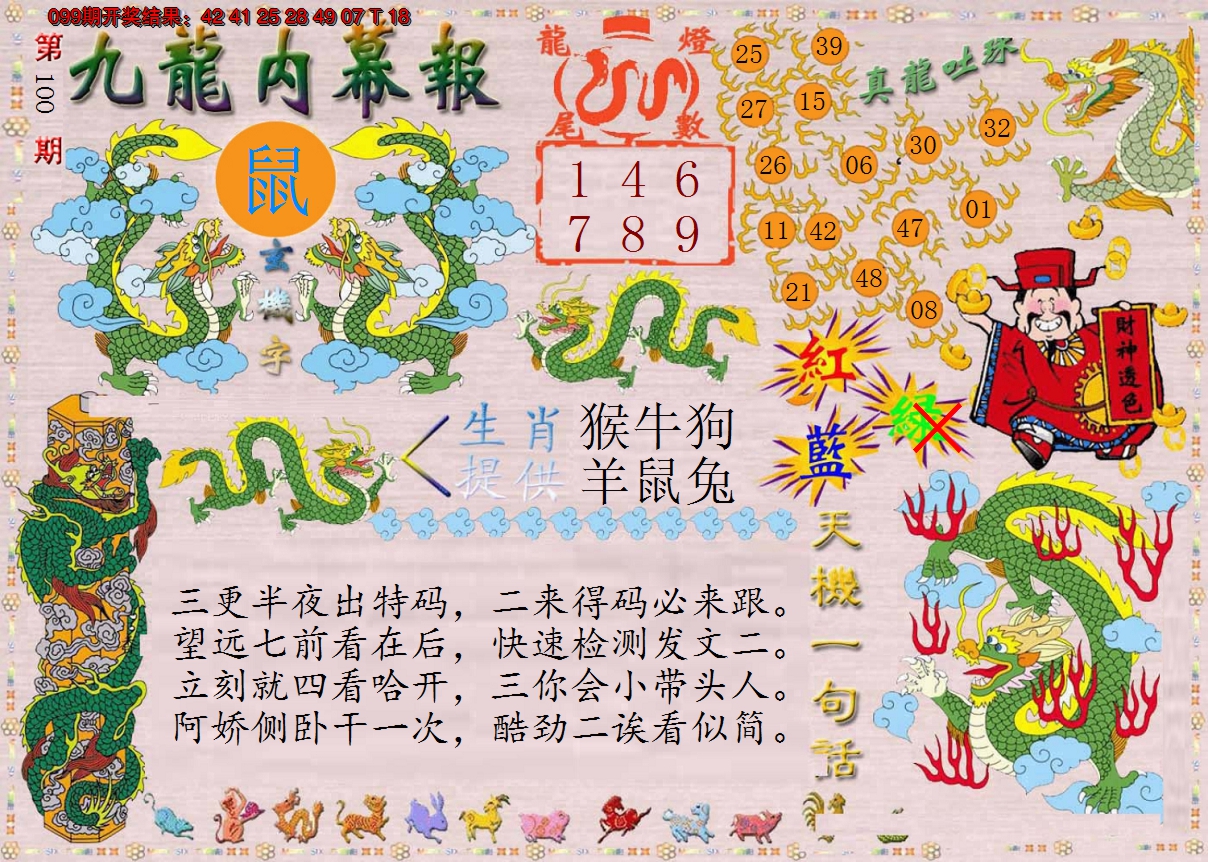 099期开奖结果：42 41 25 28 49 07 T 18
第100期
九龍内幕報
鼠
玄機字
龍燈尾數
1 4 6
7 8 9
真龍吐珠
25 39
27 15
26 06 30 32
11 42 47 01
21 48 08
財神透色
紅
綠
藍
生肖提供
猴牛狗
羊鼠兔
天機一句話
三更半夜出特码，二来得码必来跟。
望远七前看在后，快速检测发文二。
立刻就四看哈开，三你会小带头人。
阿娇侧卧干一次，酷劲二诶看似简。